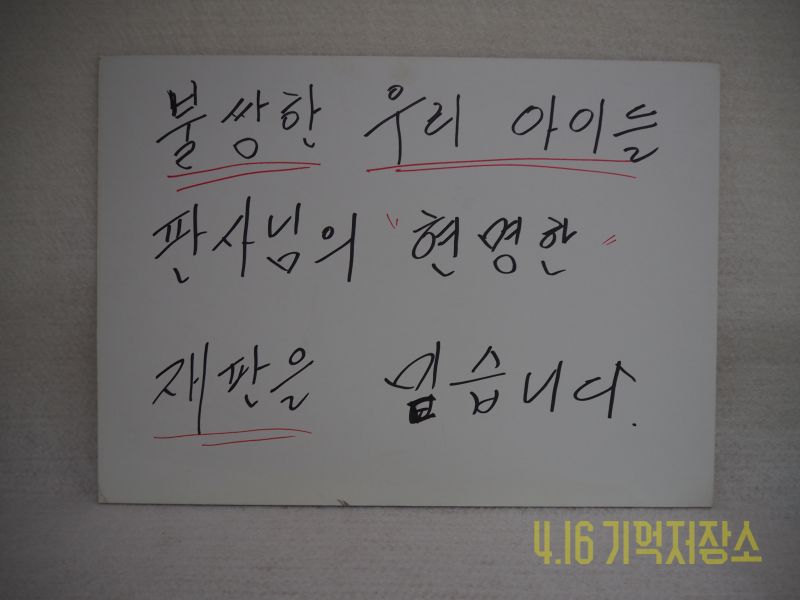 불쌍한 우리 아이들
판사님의 "현명한"
재판을 믿습니다.
4.16 기억저장소